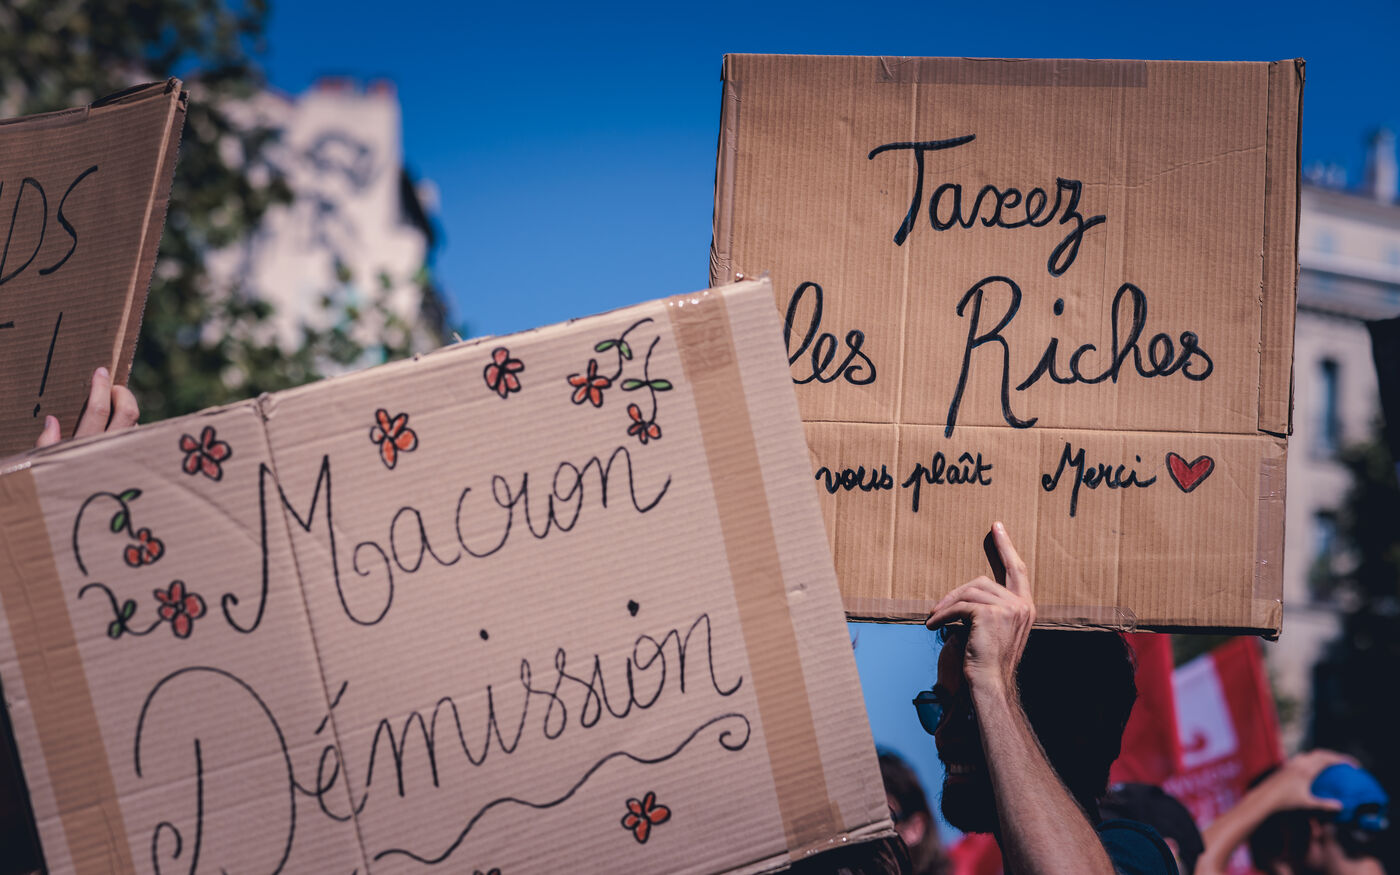 DS
!
Macron
Démission
Taxez
les Riches
vous plaît Merci